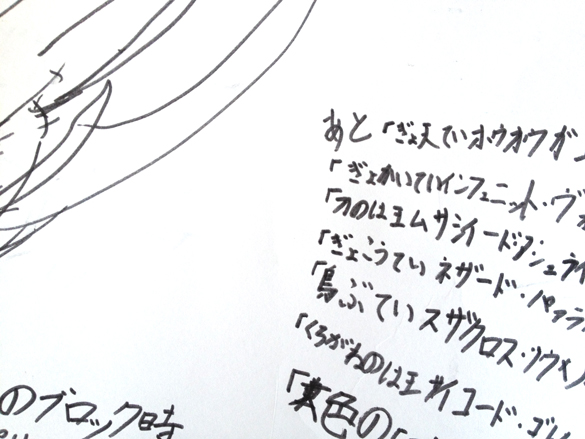 あと「ぎょ天ていホウオウガン
「ぎょかいていインフェニット・ヴォ
「刀のは王ムサシィードダシュライ
「ぎょこうていネザード・バッラ
「鳥ぶていスザクロス・ツウメ
「くろがねのは王サイコード・ゴレ
「黄色の「
のブロック時